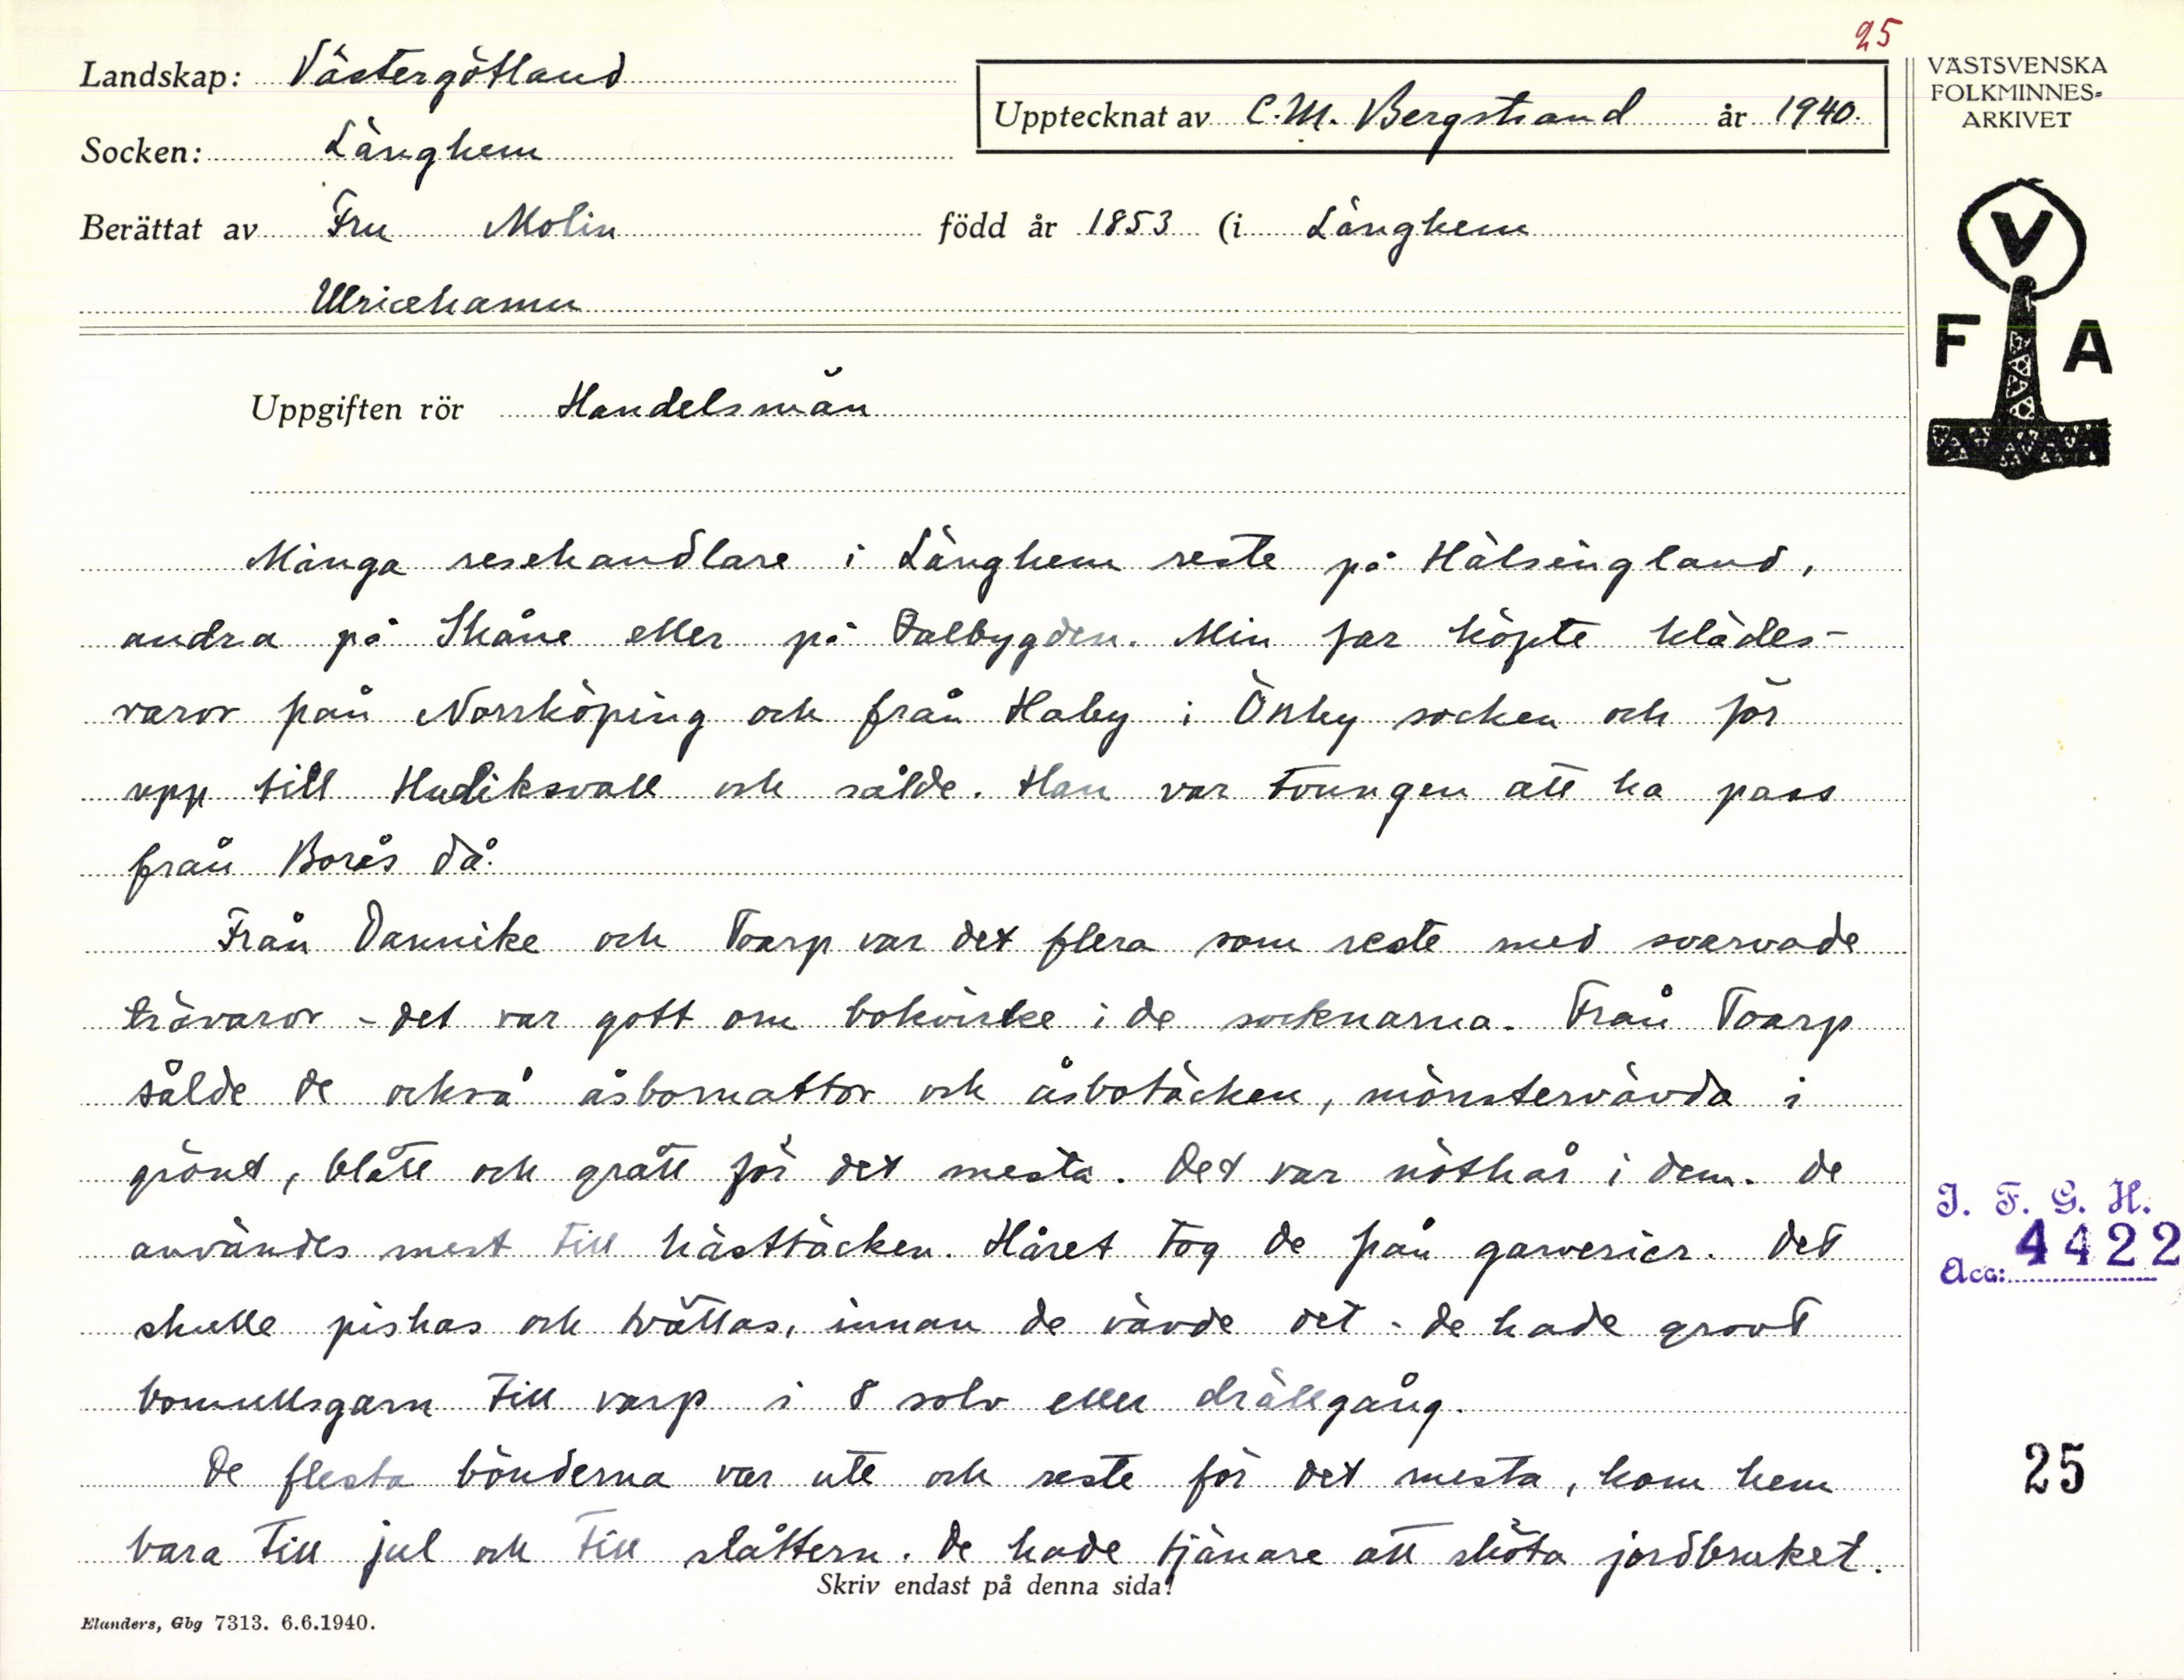 25
Landskap: Västergötland
Upptecknat av C.M. Bergstrand år 1940.
VÄSTSVENSKA
FOLKMINNES-
ARKIVET
Socken: Länghem
Berättat av Fru Molin född år 1853 (i Länghem
Ulricehamn
V
F A
Uppgiften rör Handelsmän
Många resehandlare i Länghem reste på Hälsingland,
andra på Skåne eller på Falbygden. Min far köpte klädes-
varor från Norrköping och från Haby i Örby socken och för
upp till Hudiksvall och sålde. Han var tvungen att ha pass
från Borås då.
Från Dannike och Toarp var det flera som reste med svarvade
trävaror - det var gott om bokvirke i de socknarna. Från Toarp
sålde de också åsbomattor och åsbotäcken, mönstervävda i
grönt, blått och grått för det mesta. Det var nöthår i dem. De
användes mest till hästtäcken. Håret tog de från garverier. Det
skulle piskas och tvättas, innan de vävde det - de hade grovt
bomullsgarn till varp i 8 solv eller drällgång.
De flesta bönderna var ute och reste för det mesta, kom hem
bara till jul och till slåttern. De hade tjänare att sköta jordbruket.
I. F. G. H.
Acc: 4422
25
Skriv endast på denna sida!
Elanders, Gbg 7313. 6.6.1940.